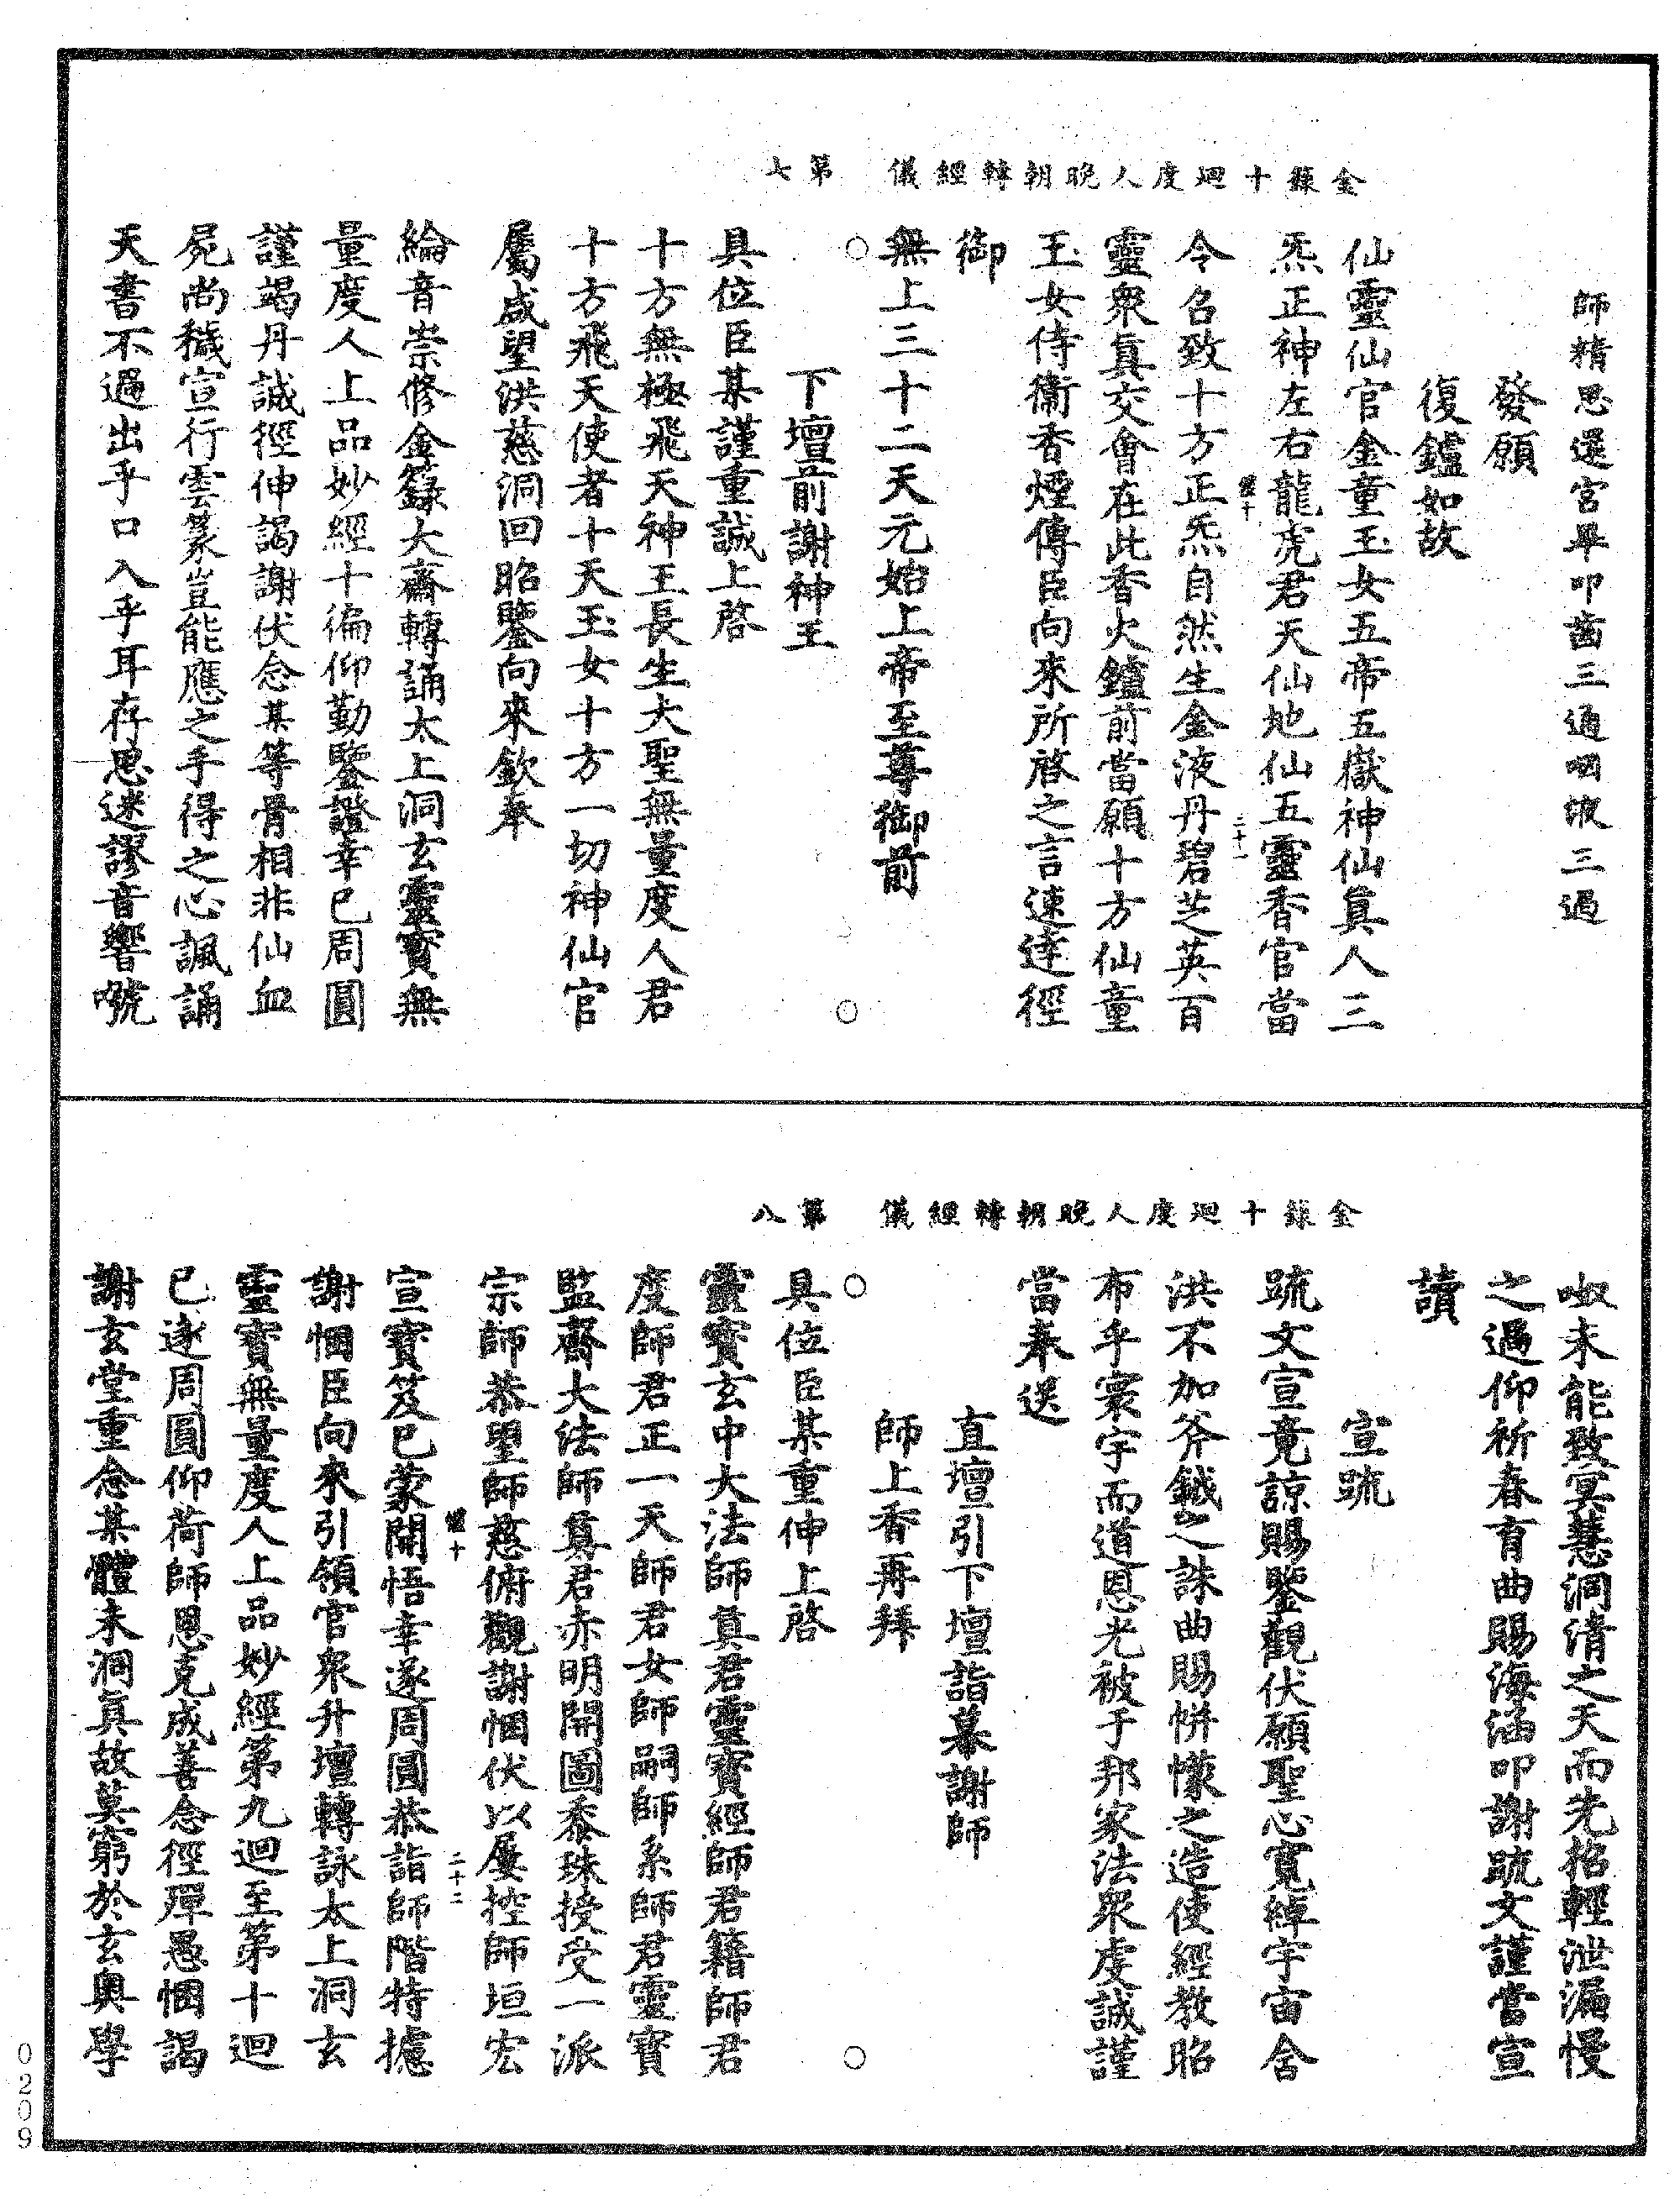 金籙十廻度人晚朝轉經儀　第七
師精思還宮畢叩齒三通咽液三過
發願
復鑪如故
仙靈仙官金童玉女五帝五嶽神仙眞人三
炁正神左右龍虎君天仙地仙五靈香官當
二十一
令召致十方正炁自然生金液丹碧芝英百
靈衆眞交會在此香火鑪前當願十方仙童
玉女侍衞香煙傳臣向來所啓之言速達徑
御
無上三十二天元始上帝至尊御前
○　○
下壇前謝神王
具位臣某謹重誠上啓
十方無極飛天神王長生大聖無量度人君
十方飛天使者十天玉女十方一切神仙官
屬咸望洪慈洞回昭鑒向來欽奉
綸音崇修金籙大齋轉誦太上洞玄靈寶無
量度人上品妙經十徧仰勤鑒證幸已周圓
謹竭丹誠徑伸謁謝伏念某等骨相非仙血
屍尚穢宣行雲篆豈能應之手得之心諷誦
天書不過出乎口入乎耳存思迷謬音響號
金籙十廻度人晚朝轉經儀　第八
呶未能致冥慧洞清之天而先招輕泄漏慢
之過仰祈春育曲賜海涵叩謝䟽文謹當宣
讀
宣䟽
䟽文宣竟諒賜鑒觀伏願聖心寬綽宇宙舍
洪不加斧鉞之誅曲賜恲懞之造使經教昭
布乎寰宇而道恩光被于邦家法衆虔誠謹
當奉送
直壇引下壇詣幕謝師
師上香再拜
○　○
具位臣某重伸上啓
靈寶玄中大法師眞君靈寶經師君籍師君
度師君正一天師君女師嗣師系師君靈寶
監齋大法師眞君赤明開圖黍珠授受一派
宗師恭望師慈俯觀謝悃伏以屢控師垣宏
二十二
宣寶笈已蒙開悟幸遂周圓恭詣師階特攄
謝悃臣向來引領官衆升壇轉詠太上洞玄
靈寶無量度人上品妙經第九廻至第十迴
已遂周圓仰荷師恩克成善念徑殫愚悃謁
謝玄堂重念某體未洞眞故莫窮於玄奧學
0209